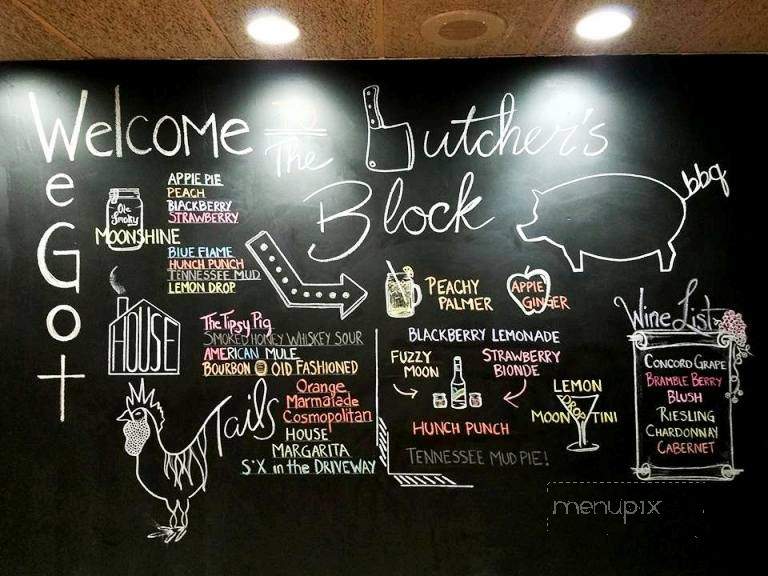 Welcome To
The
butcher's
Block
bbq
We Got
Ole
Smoky
MOONSHINE
APPlE PiE
PEACH
BLACKBERRY
STRAWBERRY
BLUE FLAME
HUNCH PUNCH
TENNESSEE MUD
LEMON DROP
HOUSE
Tails
The Tipsy Pig
SMOKED HONEY WHISKEY SOUR
AMERICAN MULE
BOURBON OlD FASHIONED
Orange
Marmalade
Cosmopolitan
HOUSE
MARGARITA
S*X in the DRIVEWAY
PEACHY
PALMER
APPlE
GINGER
BLACKBERRY LEMONADE
FUZZY
MOON
STRAWBERRY
BlONDE
LEMON
MOON TINI
HUNCH PUNCH
TENNESSEE MUD PiE!
Wine List
CONCORD GRAPE
BRAMBLE BERRY
BLUSH
RIESLING
CHARDONNAY
CABERNET
menupix